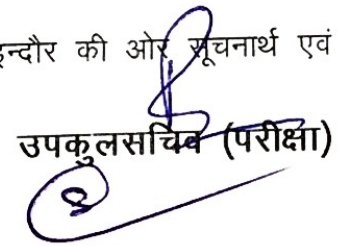 इन्दौर की ओर सूचनार्थ एवं
उपकुलसचिव (परीक्षा)